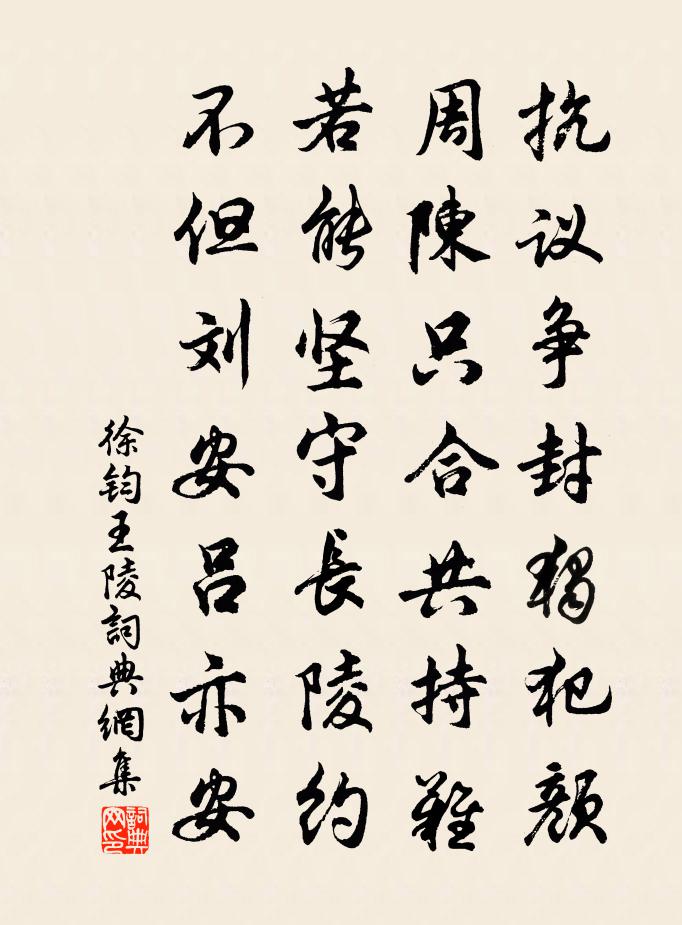 抗议争封独犯颜
周陳只合共持難
若能坚守長陵约
不但刘安吕亦安
徐钧王陵詞典網集
詞典网印